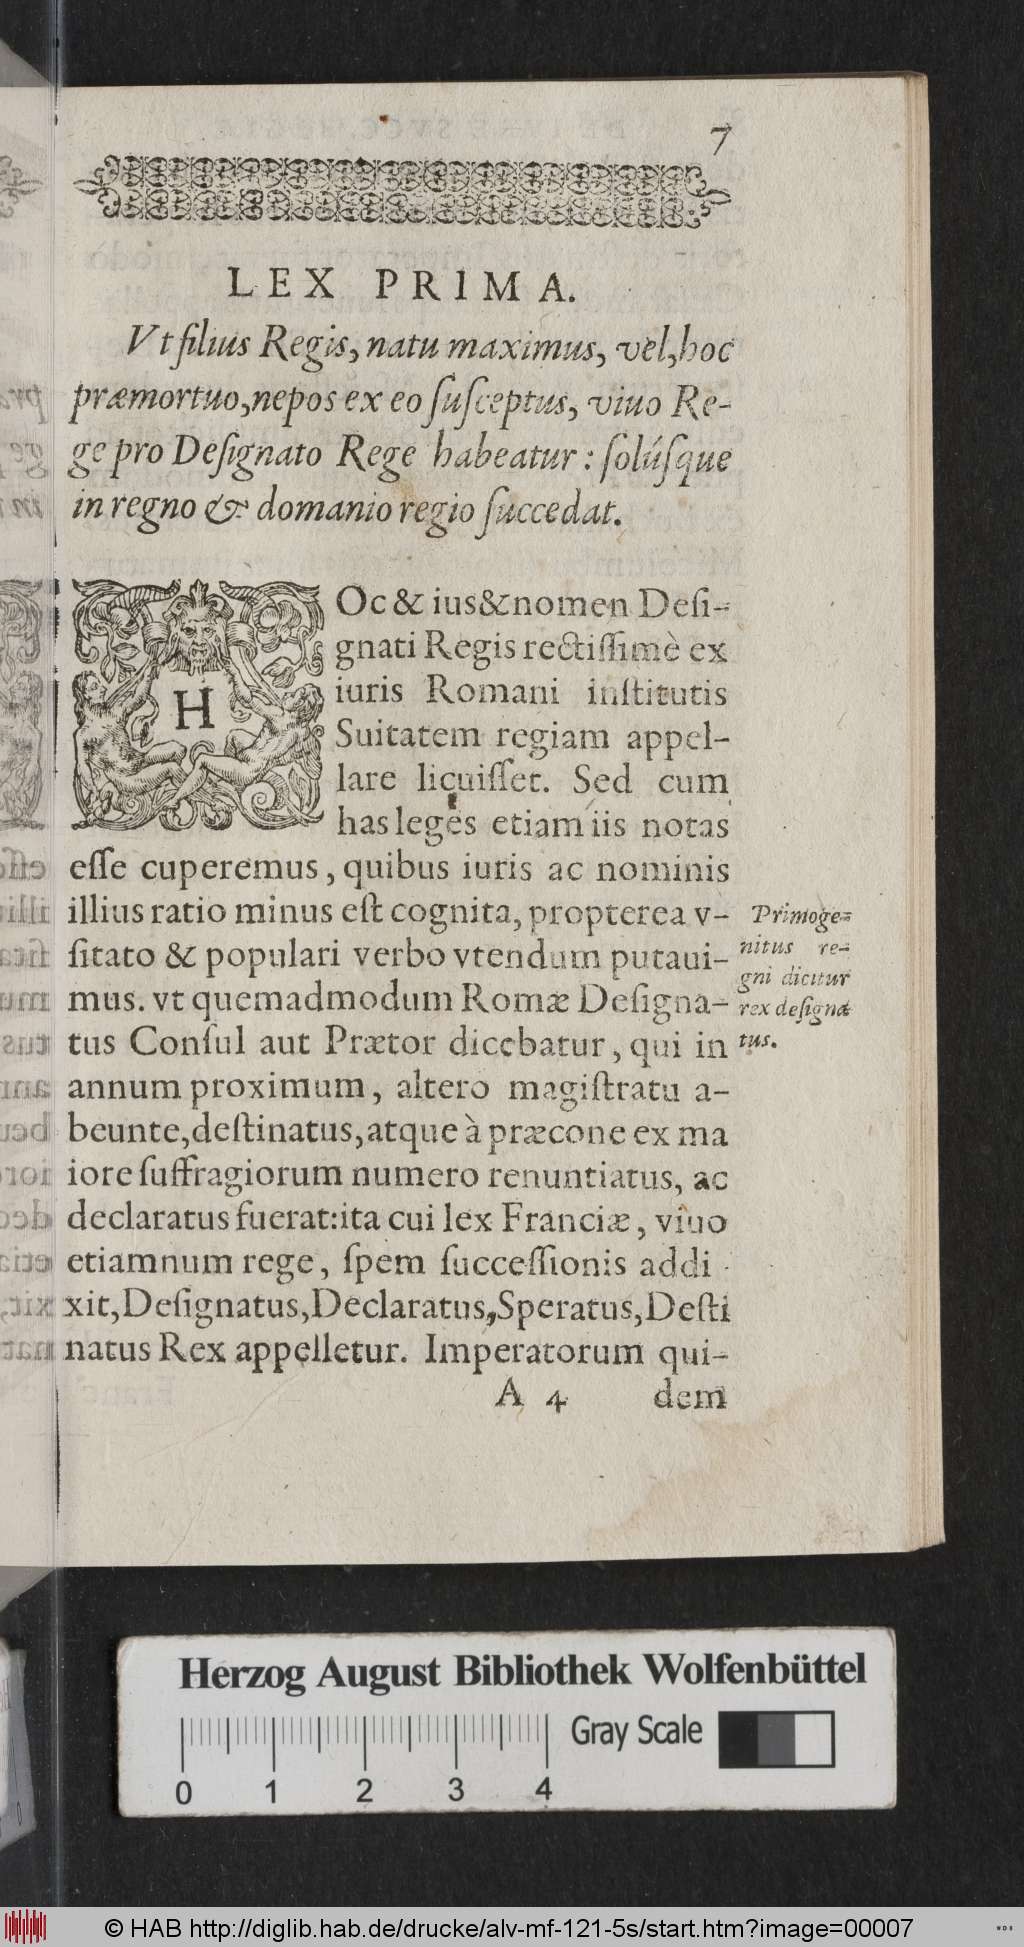 7
LEX PRIMA.
Vt filius Regis, natu maximus, vel, hoc
præmortuo, nepos ex eo ſuſceptus, viuo Re-
ge pro Deſignato Rege habeatur: ſolúſque
in regno & domanio regio ſuccedat.
HOc & ius & nomen Deſi-
gnati Regis rectiſſimè ex
iuris Romani inſtitutis
Suitatem regiam appel-
lare licuiſſet. Sed cum
has leges etiam iis notas
eſſe cuperemus, quibus iuris ac nominis
illius ratio minus eſt cognita, propterea v-
ſitato & populari verbo vtendum putaui-
mus. vt quemadmodum Romæ Deſigna-
tus Conſul aut Prætor dicebatur, qui in
annum proximum, altero magiſtratu a-
beunte, deſtinatus, atque à præcone ex ma
iore ſuffragiorum numero renuntiatus, ac
declaratus fuerat: ita cui lex Franciæ, viuo
etiamnum rege, ſpem ſucceſſionis addi
xit, Deſignatus, Declaratus, Speratus, Deſti
natus Rex appelletur. Imperatorum qui-
A 4 dem
Primoge-
nitus re-
gni dicitur
rex deſigna
tus.
Herzog August Bibliothek Wolfenbüttel
Gray Scale
0 1 2 3 4
© HAB http://diglib.hab.de/drucke/alv-mf-121-5s/start.htm?image=00007